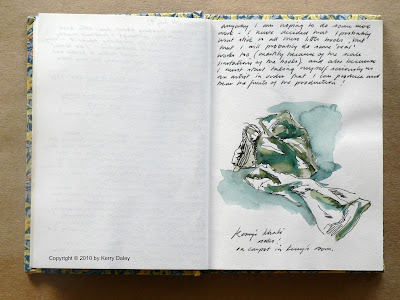 anyway I am hoping to do some more
work - I have decided that I probably
wont stick in all these little books but
that I will probably do some 'real'
works too (mainly because of the scale
limitations of the books), and also because
I must start taking myself seriously as
an artist in order that I can produce and
bear the fruits of the production!
Kenny's khaki
on carpet in Kenny's room.
Copyright © 2010 by Kerry Daley